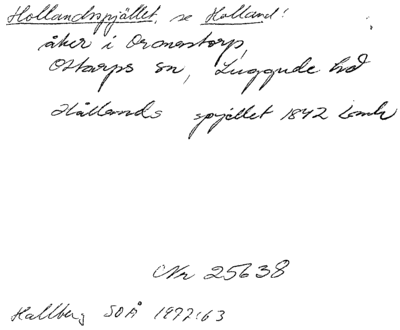 Hollandsspjället, se Holland!
åker i Ornastorp,
Ottarps sn, Luggude hd
Hållands spjellet 1842 Lmh
Nr 25638
Hallberg SOÅ 1972:63